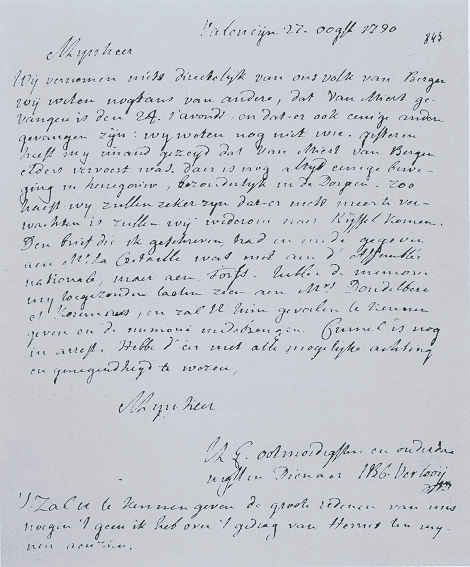 Valencijn 27. oogst 1790
843.
Mijnheer
Wij vernemen niets directelijk van ons volk van Bergen
wij weten nogtans van andere, dat van Miert ge-
vangen is den 24. s'avonds en dat-er ook eenige andere
gevangen zijn: wij weten nog niet wie. gisteren
heeft my imand gezegd dat van Miert van Bergen
elders vervoert was. daer is nog altyd eenige bewe-
ging in henegouw, bezonderlyk in de Dorpen. zoo
haest wy zullen zeker zyn dat-er niets meer te ver-
wachten is zullen wij wederom naer Ryssel komen.
Den brief die ik geschreven had en mede gegeven
aen Mr. la
was niet aen d'Assemblée
nationale, maer aen Torfs.
de memorie
my toegezonden laeten zien aen Mrs Dondelberg
et
en zal U hun gevoelen te kennen
geven en de memorie medebrengen.
is nog
in arrest. Hebbe d'eer met alle mogelijke achting
en genegendheyd te wezen,
Mijnheer
U E. ootmoedigsten en onderda-
nigsten Dienaer
Verlooij
'k Zal U te kennen geven de groote redenen van mis-
noegen 't geen ik heb over 't gedrag van
ten my-
nen aenzien.